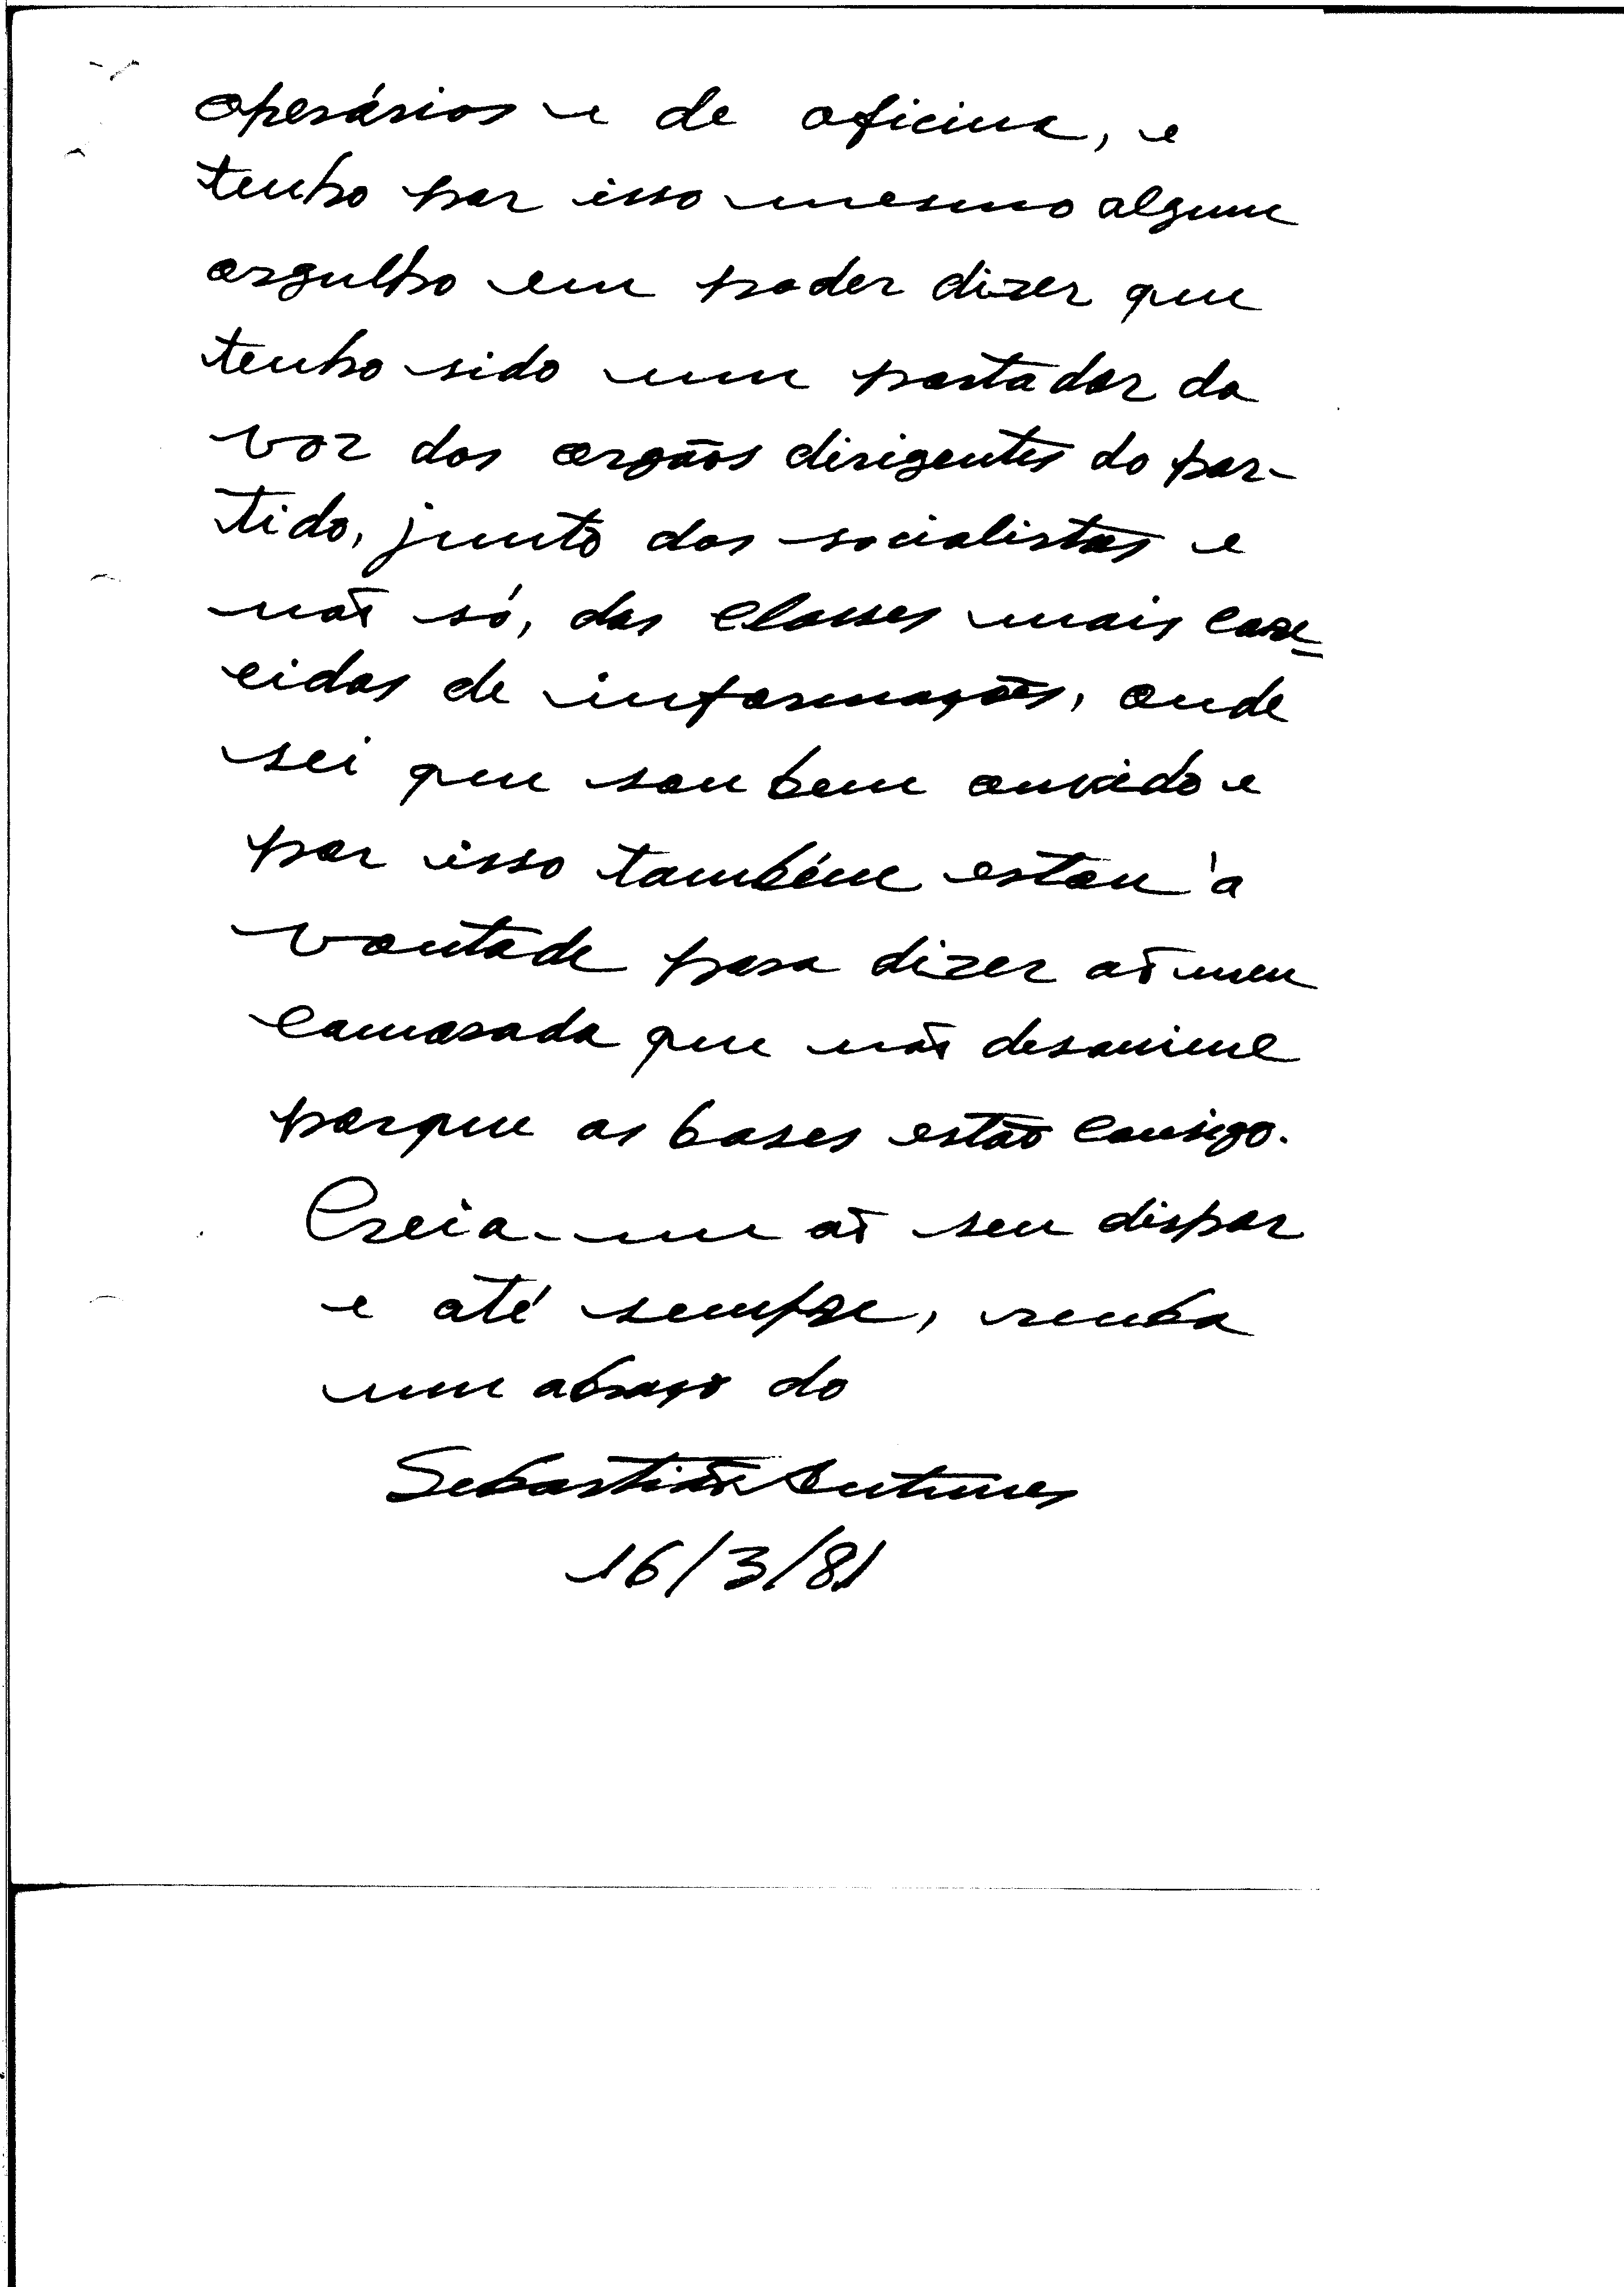 operários e de oficina, e
tenho por isso mesmo algum
orgulho em poder dizer que
tenho sido um portador da
voz dos orgãos dirigentes do par-
tido, junto dos socialistas e
não só, das classes mais care-
cidas de informações, onde
sei que sou bem ouvido e
por isso também estou à
vontade para dizer ao meu
camarada que não desanime
porque as bases estão consigo.
Creia-me ao seu dispor
e até sempre, receba
um abraço do
Sebastião Antunes
16/3/81